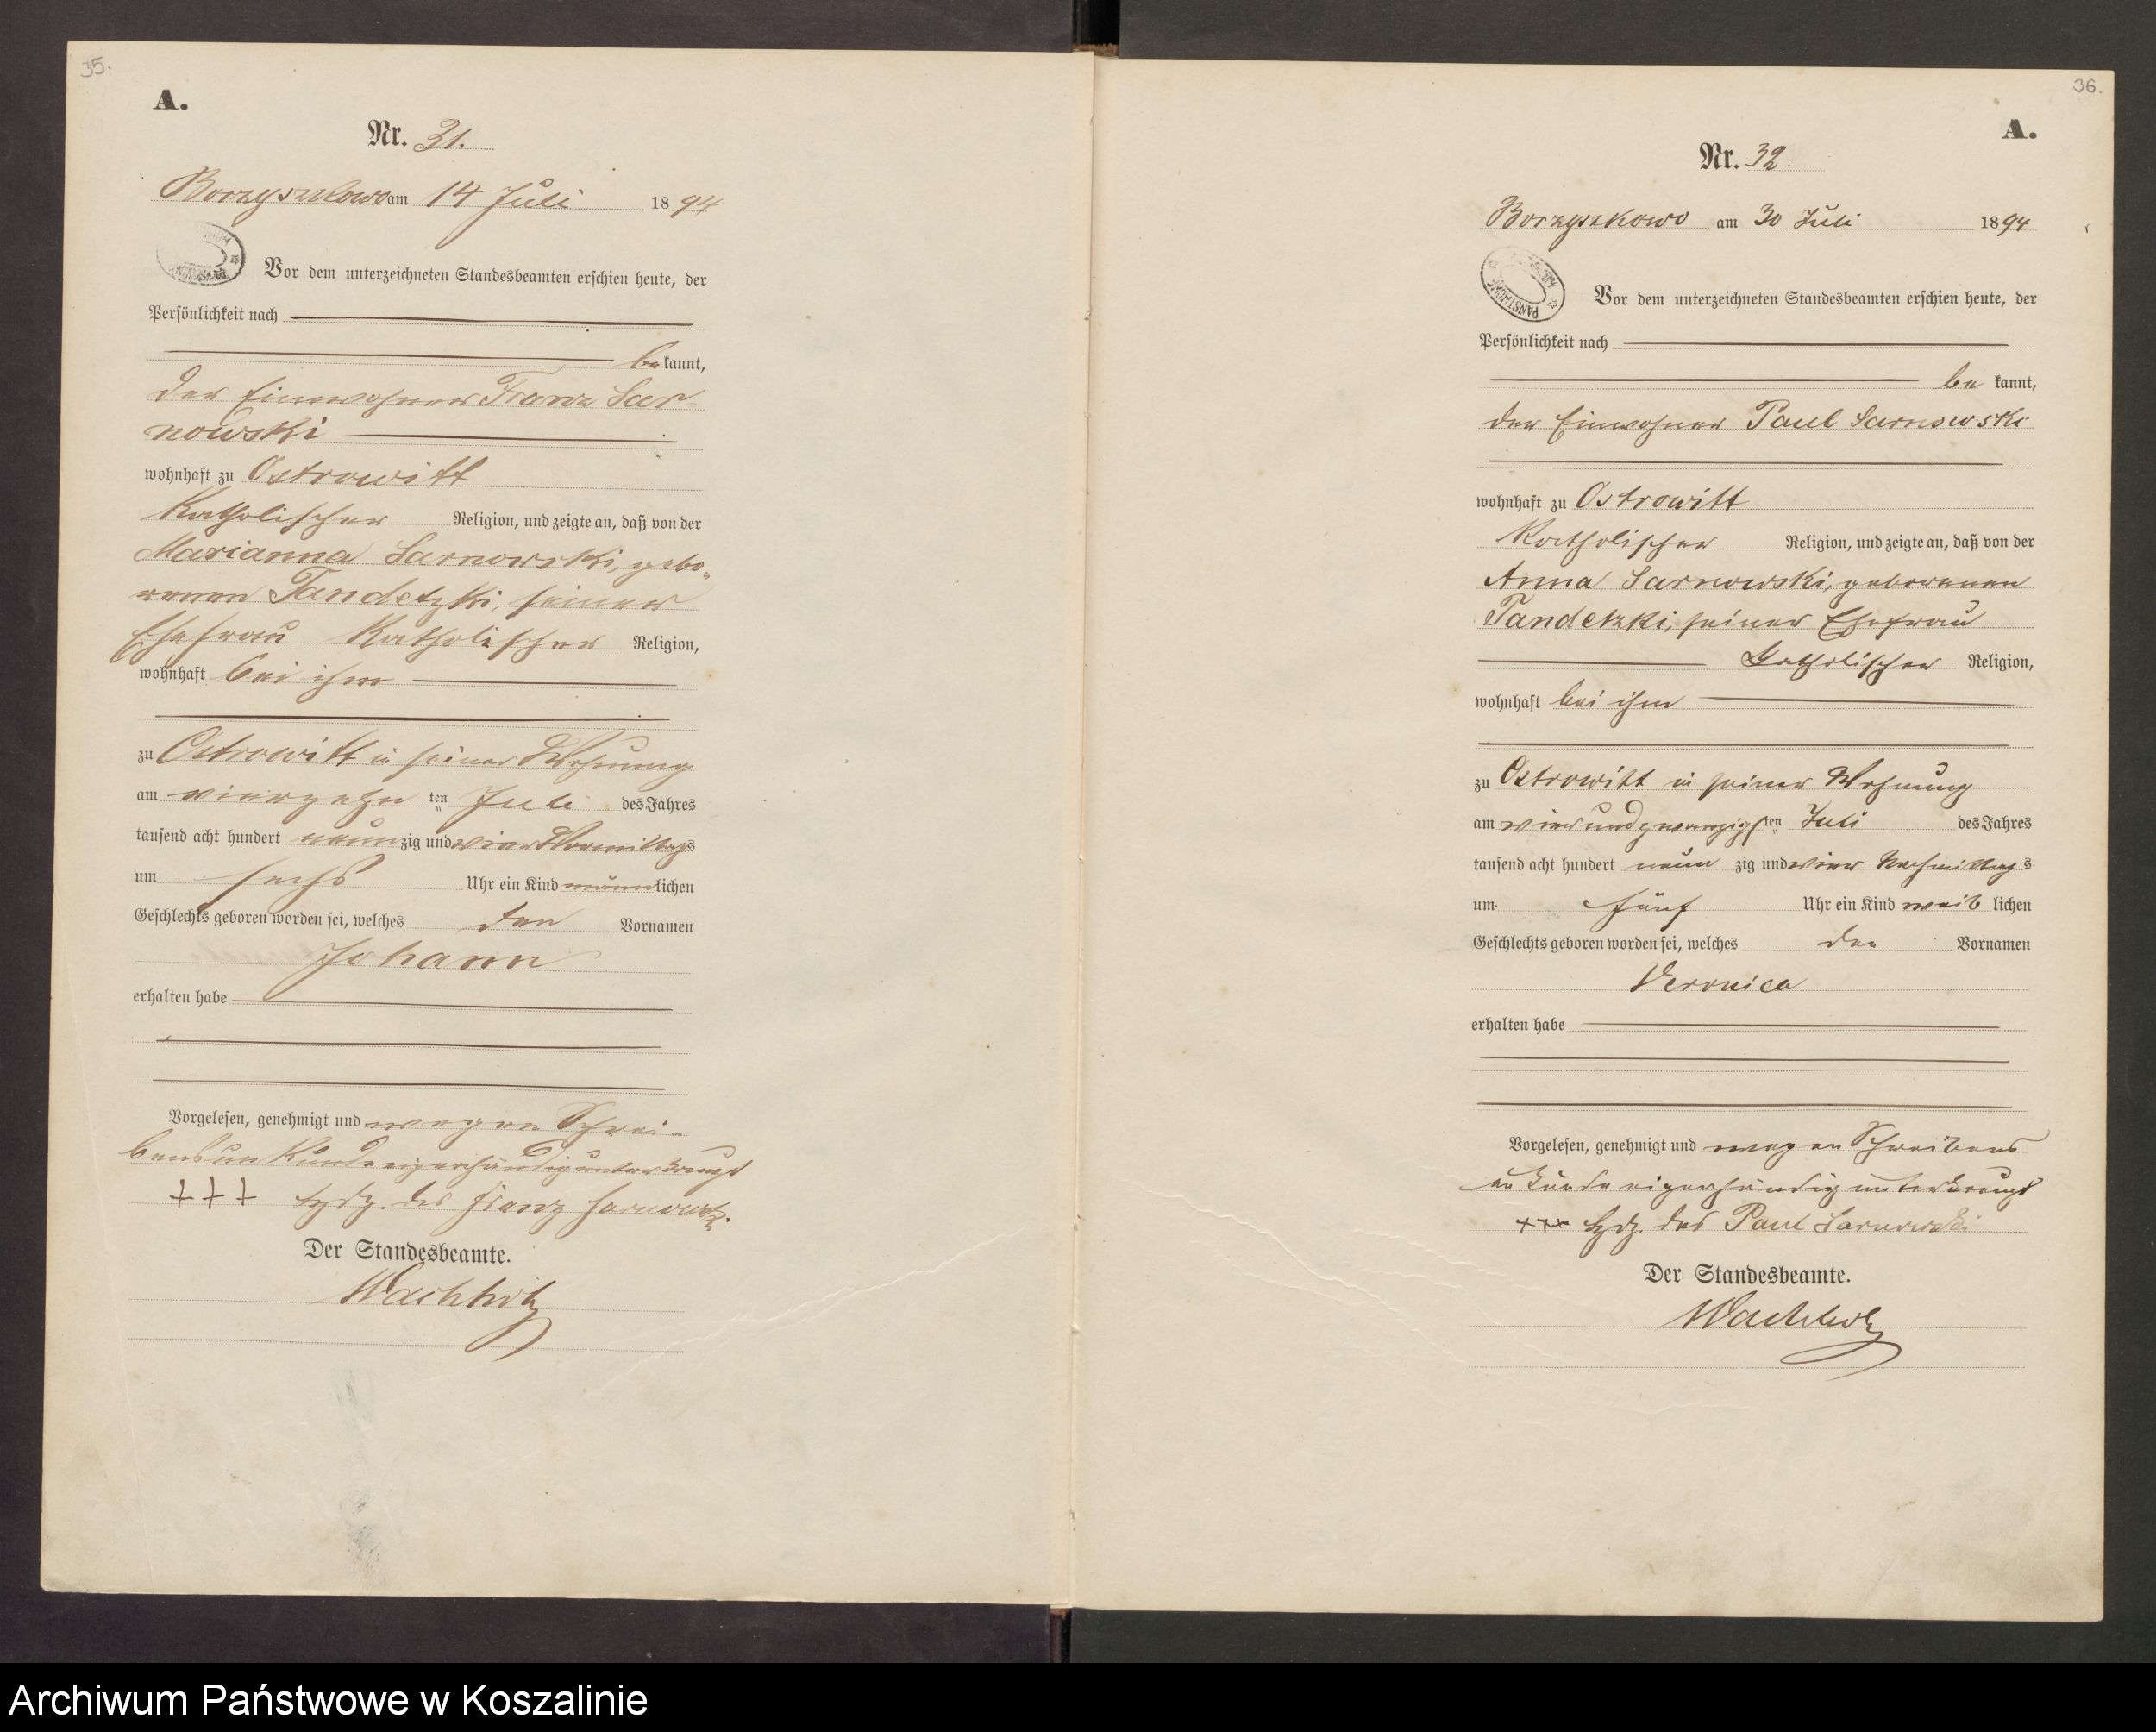 35.
A.
Nr. 31.
Borzyszkowo am 14 Juli 1894
Vor dem unterzeichneten Standesbeamten erschien heute, der
Persönlichkeit nach
be kannt,
der Einwohner Franz Sar
nowski
wohnhaft zu Ostrowitt
Katholischer Religion, und zeigte an, daß von der
Marianna Sarnowski, gebo-
renen Tandetzki, seiner
Ehefrau Katholischer Religion,
wohnhaft bei ihm
zu Ostrowitt in seiner Wohnung
am vierzehn ten Juli des Jahres
tausend acht hundert neun zig und vier Vormittags
um sechs Uhr ein Kind männlichen
Geschlechts geboren worden sei, welches den Vornamen
Johann
erhalten habe
Vorgelesen, genehmigt und wegen Schrei-
bensunkunde eigenhändig unterkreuzt
+++ Hdz. des Franz Sarnowski.
Der Standesbeamte.
Wachholz
36.
A.
Nr. 32.
Borzyszkowo am 30 Juli 1894
PAŃSTWOWE
Vor dem unterzeichneten Standesbeamten erschien heute, der
Persönlichkeit nach
be kannt,
der Einwohner Paul Sarnowski
wohnhaft zu Ostrowitt
Katholischer Religion, und zeigte an, daß von der
Anna Sarnowski, geborenen
Tandetzki, seiner Ehefrau
Katholischer Religion,
wohnhaft bei ihm
zu Ostrowitt in seiner Wohnung
am vierundzwanzigsten Juli des Jahres
tausend acht hundert neun zig und vier Nachmittags
um fünf Uhr ein Kind weib lichen
Geschlechts geboren worden sei, welches den Vornamen
Veronica
erhalten habe
Vorgelesen, genehmigt und wegen Schreibens
unkunde eigenhändig unterkreuzt
+++ Hdz. des Paul Sarnowski
Der Standesbeamte.
Wachholz
Archiwum Państwowe w Koszalinie